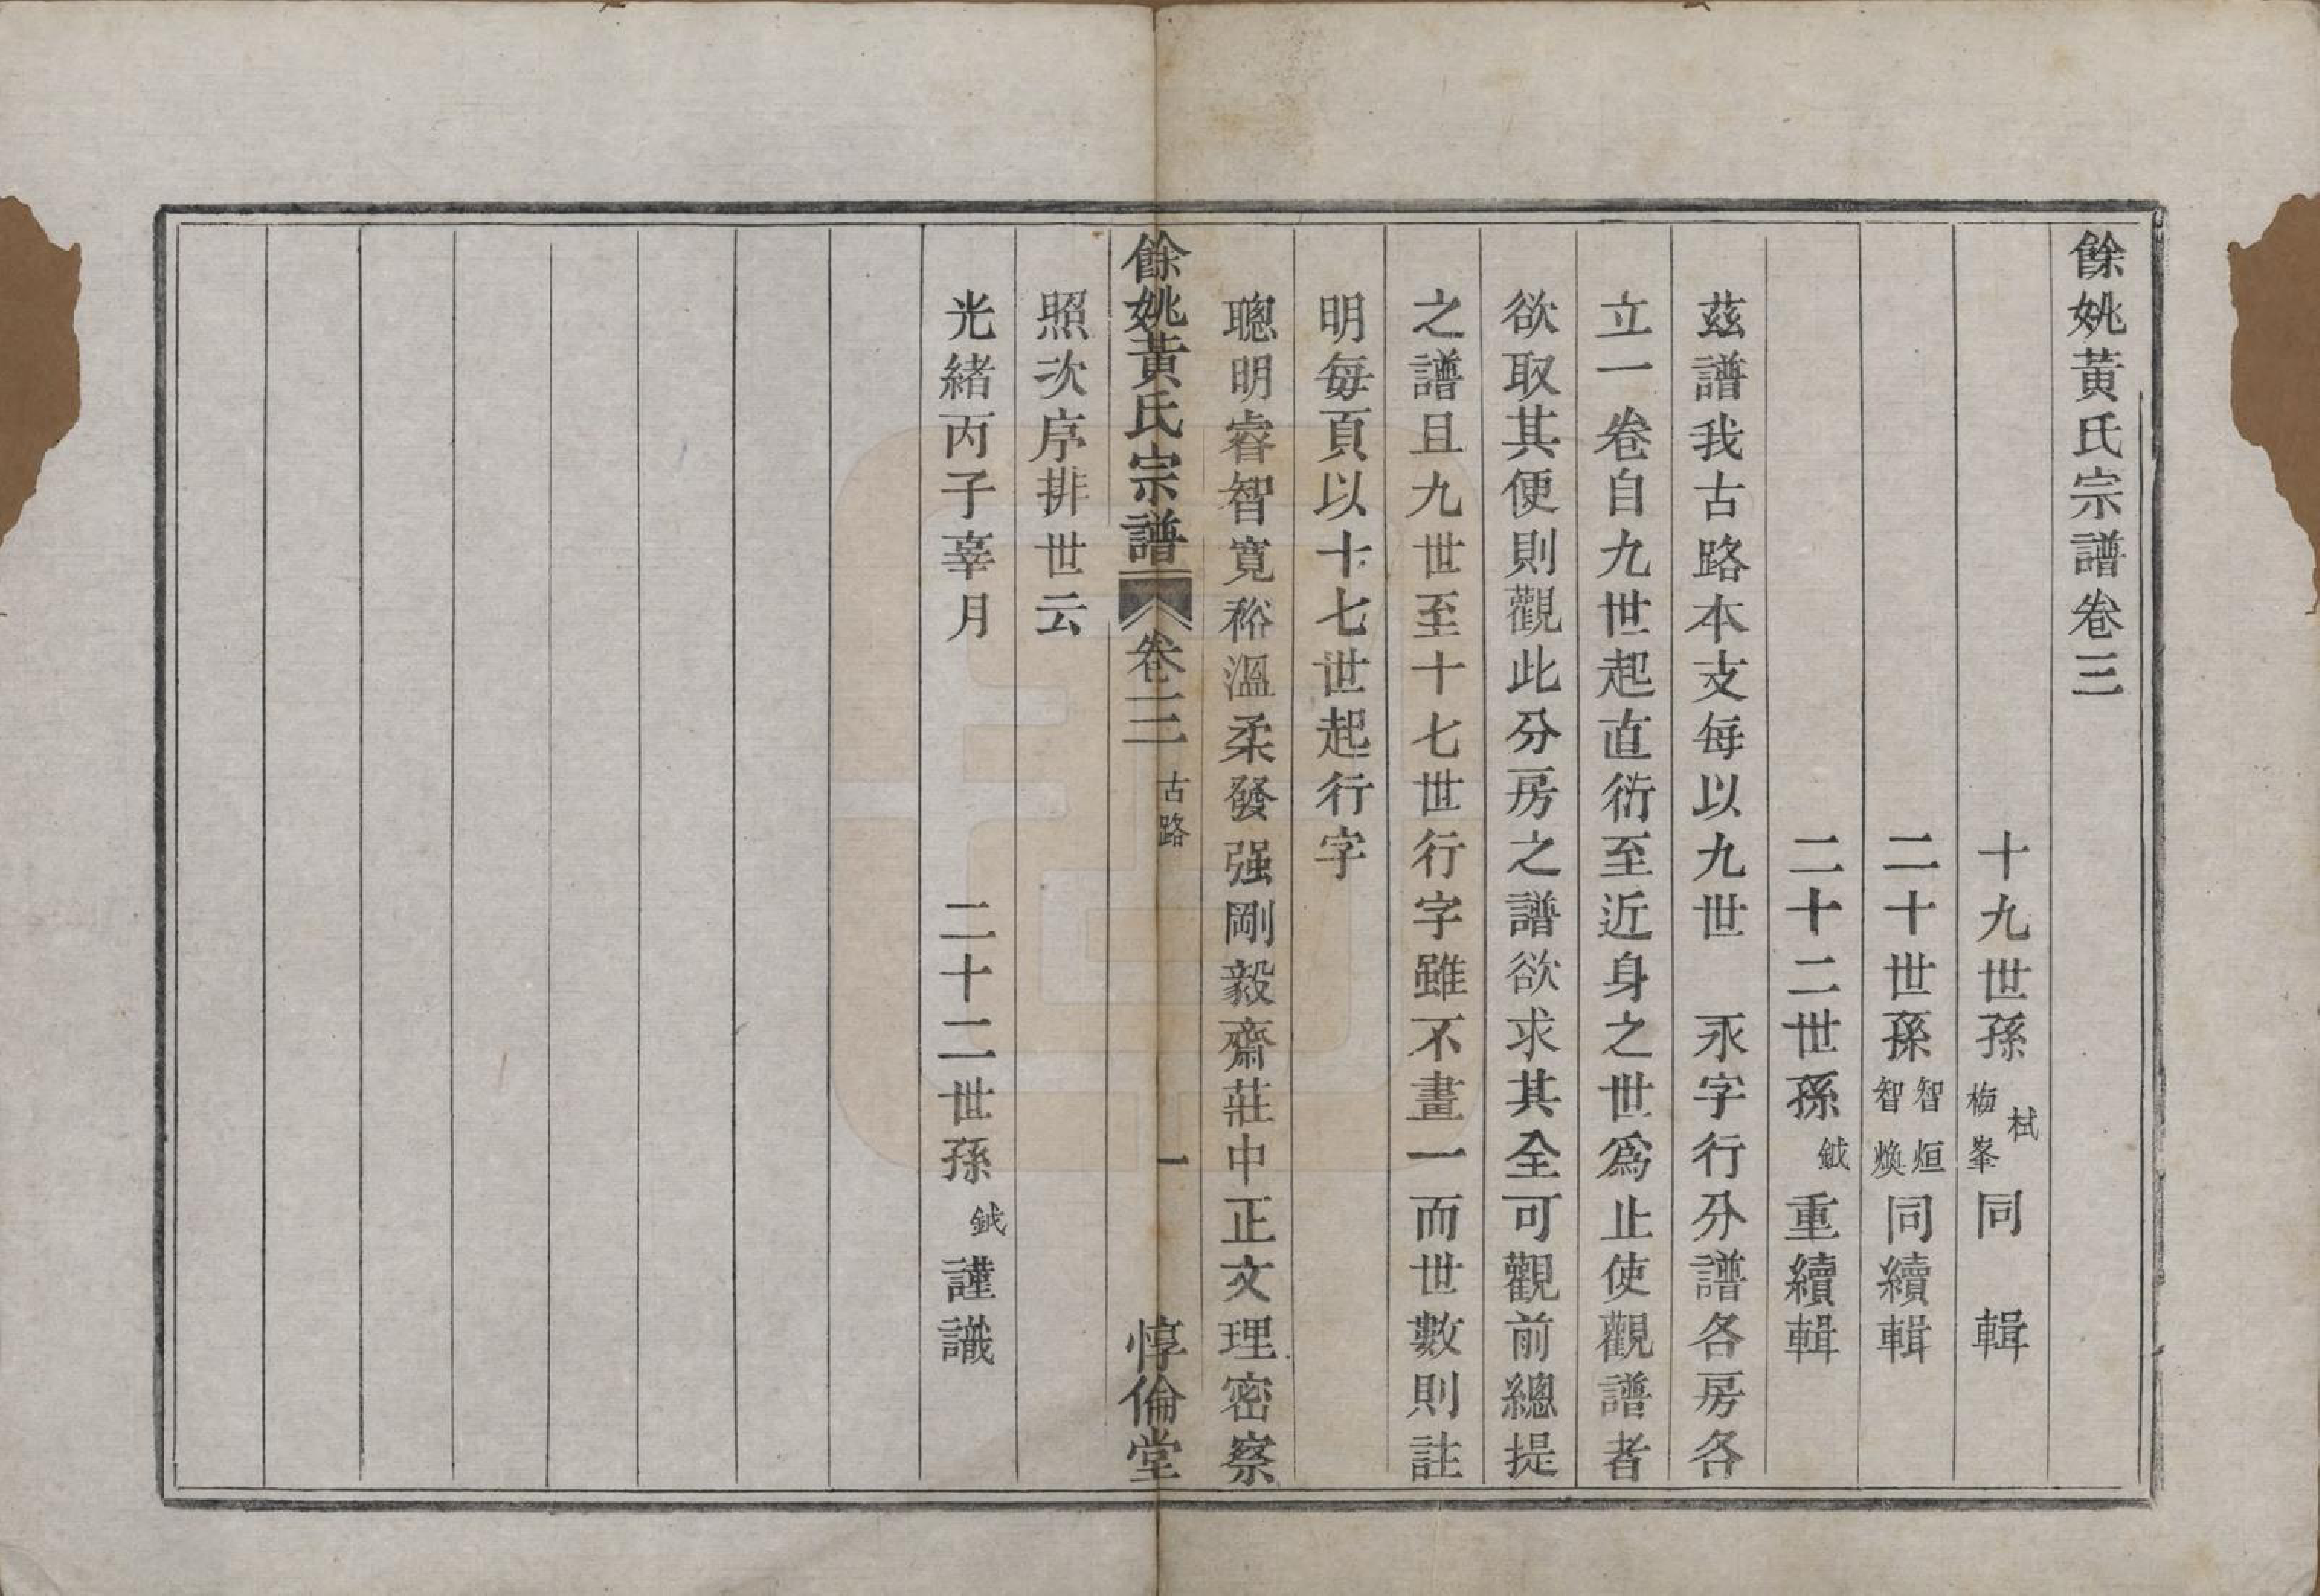 餘姚黃氏宗譜卷三
十九世孫 栻 梅峯 同 輯
二十世孫 智烜 智煥 同續輯
二十二世孫 鉞 重續輯
茲譜我古路本支每以九世 承字行分譜各房各
立一卷自九世起直衍至近身之世爲止使觀譜者
欲取其便則觀此分房之譜欲求其全可觀前總提
之譜且九世至十七世行字雖不畫一而世數則註
明每頁以十七世起行字
聰明睿智寬裕溫柔發强剛毅齋莊中正文理密察
餘姚黃氏宗譜 卷三 古路 一 惇倫堂
照次序排世云
光緒丙子辜月 二十二世孫 鉞 謹識